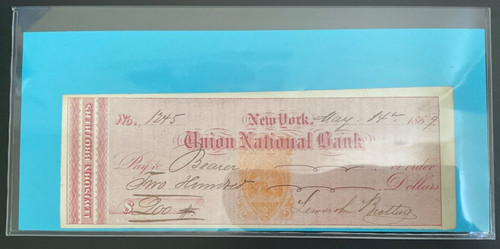 LEWISOHN BROTHERS
No. 1245 New York, May 14th 1869.
Union National Bank
Pay to Bearer or order
Two Hundred Dollars
$ 200 Lewisohn Brothers